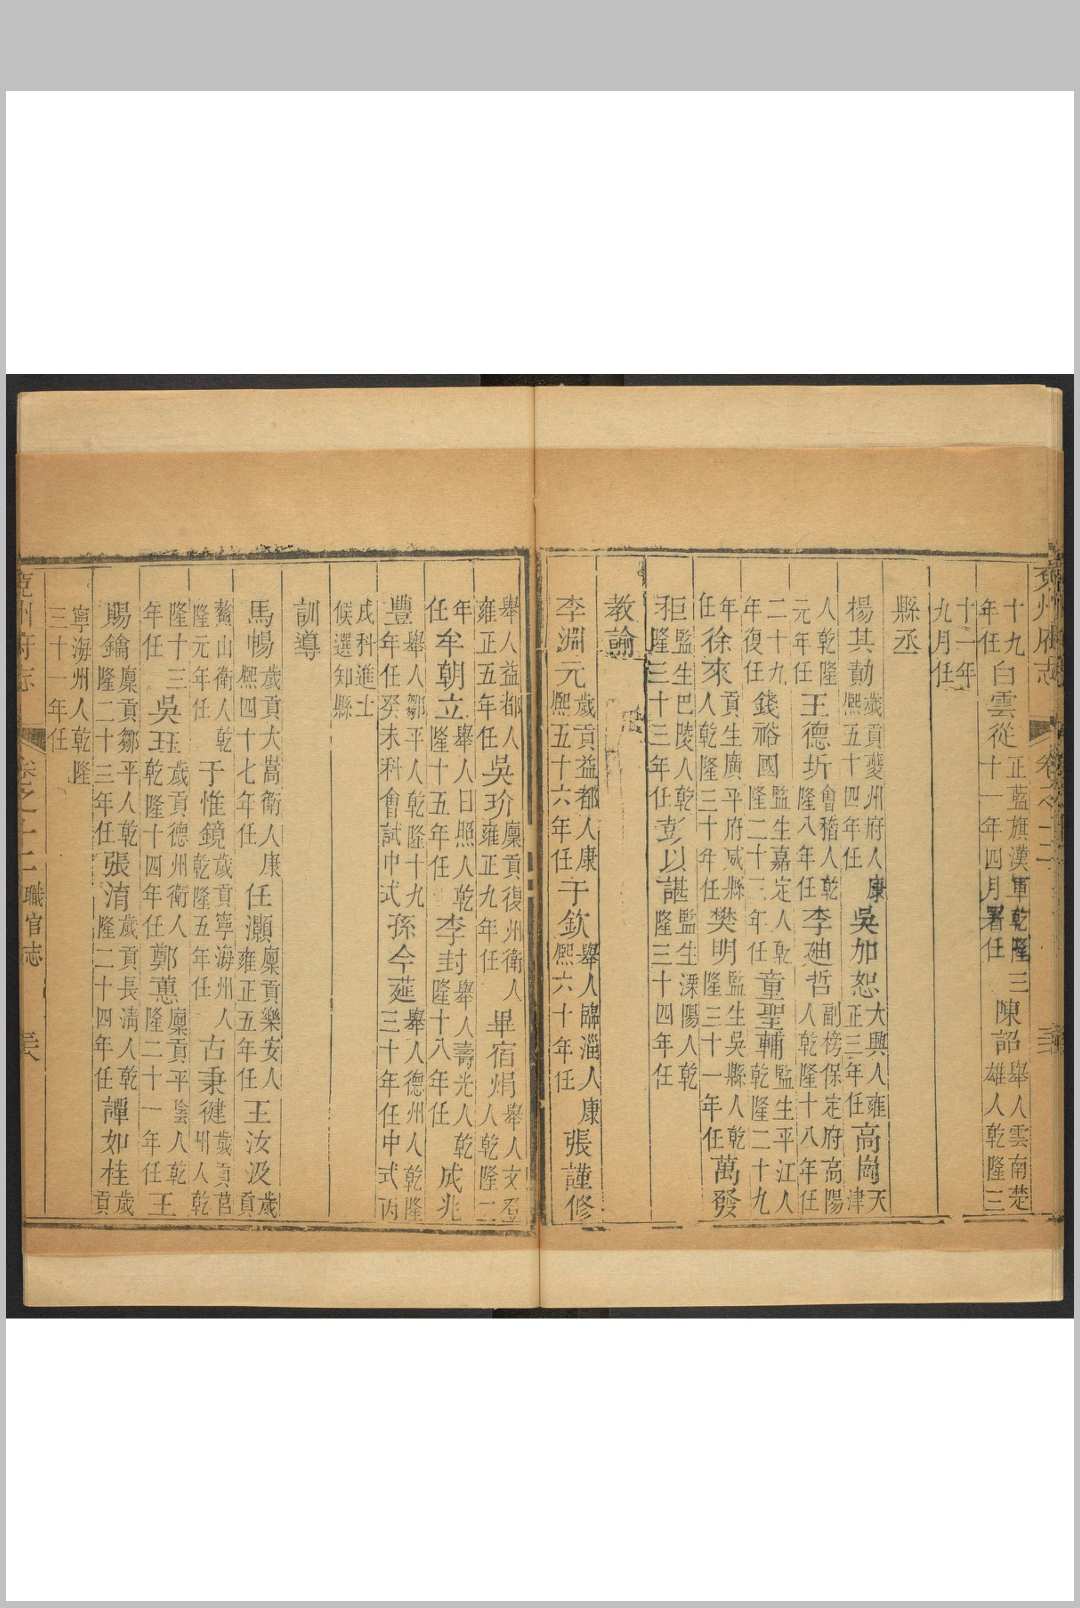 兗州府志
十九年任白雲從正藍旗漢軍乾隆三十一年四月署任陳韶舉人雲南楚雄人乾隆三
十二年九月任
縣丞
楊其勣歲貢夔州府人康熙五十四年任吳加恕大興人雍正三年任高崗天津
人乾隆元年任王德圻會稽人乾隆八年任李廸哲副榜保定府高陽人乾隆十八年任
二十九年復任錢裕國監生嘉定人乾隆二十三年任童聖輔監生平江人乾隆二十九
年任徐來貢生廣平府咸縣人乾隆三十年任樊明監生吳縣人乾隆三十一年任萬發
秬監生巴陵人乾隆三十三年任彭以諶監生溧陽人乾隆三十四年任
教諭
李淵元歲貢益都人康熙五十六年任于欽舉人臨淄人康熙六十年任張謹修
舉人益都人雍正五年任吳玠廩貢復州衛人雍正九年任畢宿焆舉人文登人乾隆二
年任牟朝立舉人日照人乾隆十五年任李封舉人壽光人乾隆十八年任成兆
豐舉人鄒平人乾隆十九年任癸未科會試中式孫今莚舉人德州人乾隆三十年任中式丙
戌科進士候選知縣
訓導
馬暢歲貢大嵩衛人康熙四十七年任任灝廩貢樂安人雍正五年任王汝汲歲貢
鰲山衛人乾隆元年任于惟鏡歲貢寧海州人乾隆五年任古秉䢖歲貢莒州人乾
隆十三年任吳珏歲貢德州衛人乾隆十四年任鄭蕙廩貢平陰人乾隆二十一年任王
賜鑰廩貢鄒平人乾隆二十三年任張淯歲貢長清人乾隆二十四年任譚如桂歲貢
寧海州人乾隆三十一年任
兗州府志 卷之十二 職官志